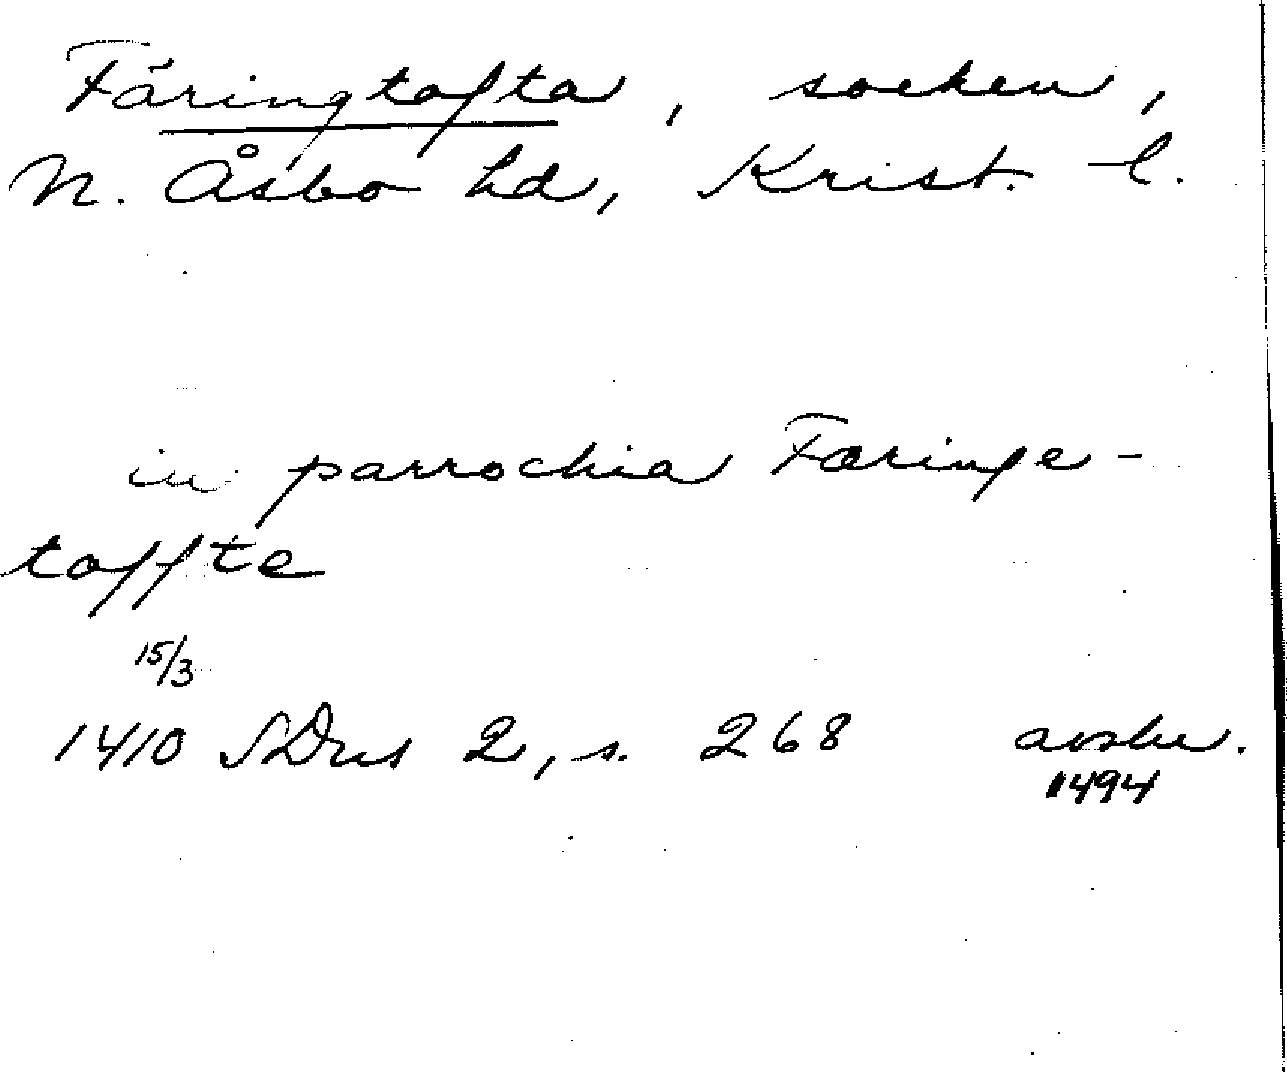 Färingtofta, socken,
N. Åsbo hd, Krist. l.
in parrochia Færinge-
toffte
15/3
1410 SDns 2, s. 268 avskr.
1494